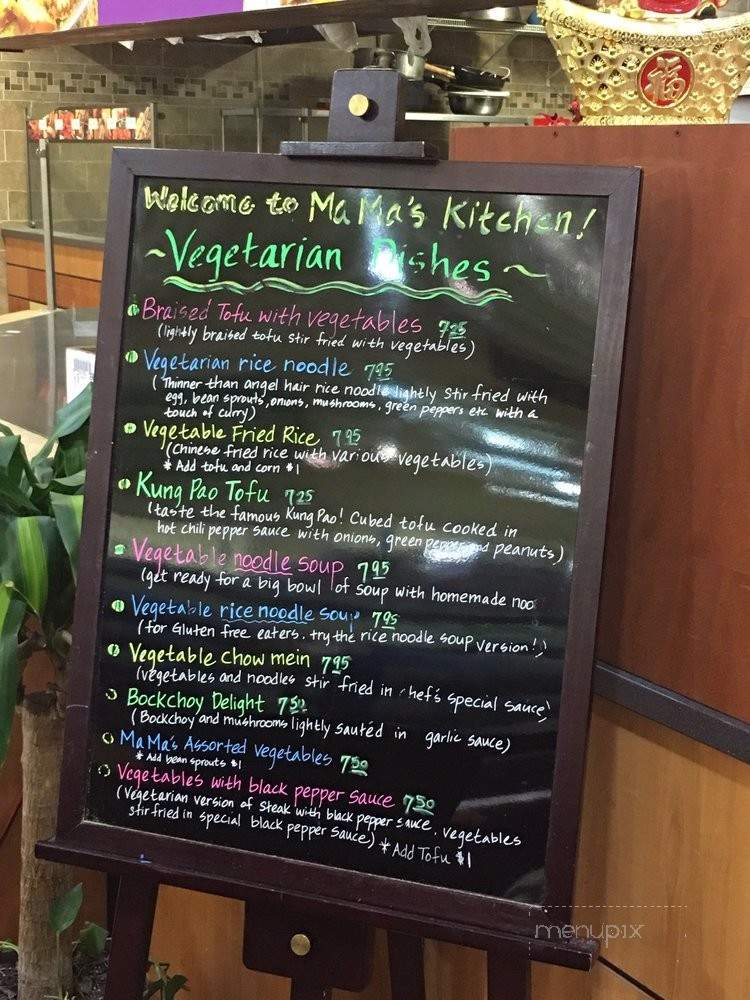 福
Welcome to MaMa's Kitchen!
~Vegetarian Dishes~
Braised Tofu with vegetables 7.25
(lightly braised tofu stir fried with vegetables)
Vegetarian rice noodle 7.95
(Thinner than angel hair rice noodle lightly stir fried with
egg, bean sprouts, onions, mushrooms, green peppers etc with a
touch of curry)
Vegetable Fried Rice 7.95
(Chinese fried rice with various vegetables)
* Add tofu and corn $1
Kung Pao Tofu 7.25
(taste the famous Kung Pao! Cubed tofu cooked in
hot chili pepper sauce with onions, green pepper and peanuts)
Vegetable noodle soup 7.95
(get ready for a big bowl of soup with homemade noo
Vegetable rice noodle soup 7.95
(for Gluten free eaters. try the rice noodle soup version!)
Vegetable chow mein 7.95
(vegetables and noodles stir fried in chef's special sauce)
Bockchoy Delight 7.50
(Bockchoy and mushrooms lightly sautéd in garlic sauce)
MaMa's Assorted vegetables 7.50
* Add bean sprouts $1
Vegetables with black pepper sauce 7.50
(Vegetarian version of steak with black pepper sauce. vegetables
stir fried in special black pepper sauce) * Add Tofu $1
menupix